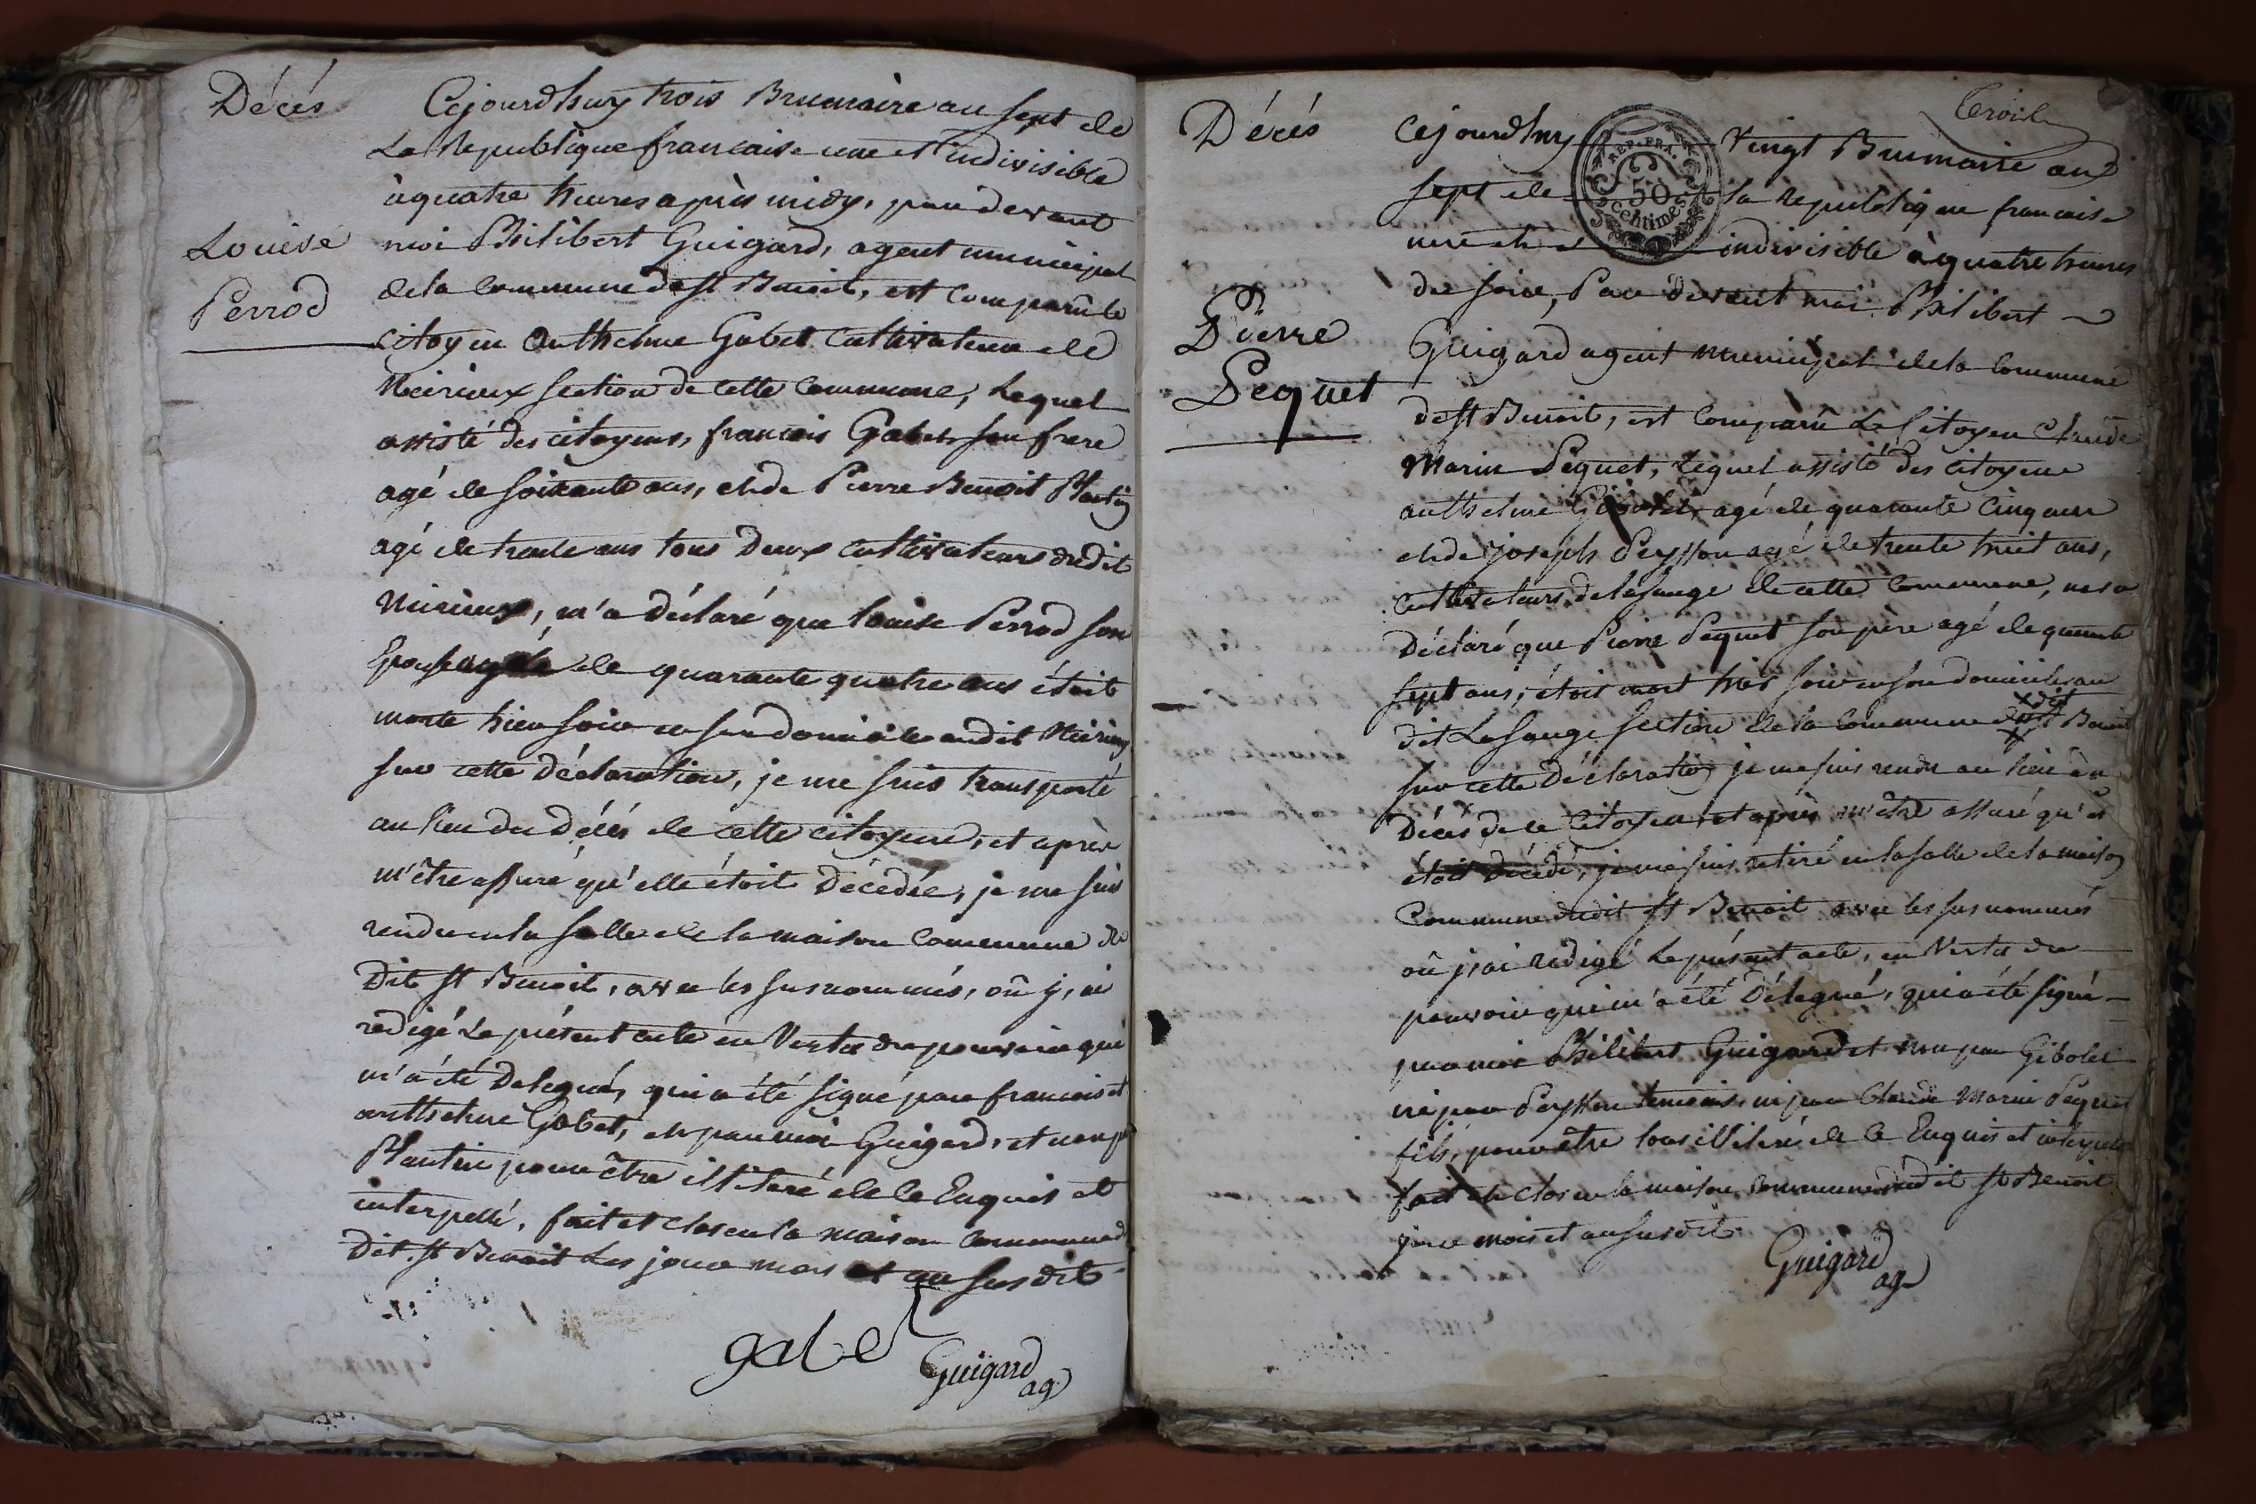 Décés
Louise
Perrod
Cejourdhuy trois Brumaire an sept de
La Republique francaise une et indivisible
à quatre heures après midy, par devant
moi Philibert Guigard, agent municipal
de la Commune de St Benoit, est comparû le
citoyen Anthelme Gabet Cultivateur de
section de cette Commune, Lequel
assisté des citoyens, francois Gabet son frere
agé de soixante ans, et de Pierre Benoit Plantin
agé de trente ans tous Deux cultivateurs dudit
m'a déclaré que Louise Perrod son
Epouse agée de quarante quatre ans étoit
morte hier soir en son domicile audit
sur cette Déclaration, je me suis transporté
au lieu du Décés de cette citoyene, et après
m'être assuré qu'elle étoit Décedée, je me suis
rendu en la salle de la maison Commune du
Dit St Benoit, avec les susnommés, où j'ai
redigé Le présent acte en Vertu du pouvoir qui
m'a été Delegué, qui a été signé par francois et
anthelme Gabet, et par moi Guigard, et non par
Plantin pour être illiteré de ce Enquis et
interpellé, fait et clos en la maison Commune du
Dit St Benoit Les jour mois et an susdit
gabet
Guigard
ag
Décés
Pierre
Pequet
Cejourdhuy Vingt Brumaire an
sept de la Republique francaise
une et indivisible à quatre heures
du soir, Par devant moi Philibert
Guigard agent Municipal de la Commune
de St Benoit, est Comparû Le Citoyen Claude
Marin Pequet, Lequel assisté des citoyens
anthelme Gibolet, agé de quarante Cinq ans
et de joseph Peysson agé de trente huit ans,
Cultivateurs de la Sauge de cette Commune, m'a
Déclaré que Pierre Pequet son pere agé de
sept ans, étoit mort hier soir en son domicile au
dit
dit La sauge section de la Commune St Benoit
sur cette Déclaration je me suis rendu au lieu du
Décés de ce Citoyen et après m'être assuré qu'il
étoit décédé, je me suis retiré en la salle de la maison
Commune dudit St Benoit avec les susnommés
où j'ai redigé Le présent acte, en Vertu du
pouvoir qui m'a été Délegué, qui a été signé
par moi Philibert Guigard et non par Gibolet
ni par Peysson temoins, ni par Claude Marin Pequet
fils, pour être tous illiteré de ce Enquis et interpellé
fait et clos en la maison commune dudit St Benoit
jour mois et an susdit
Guigard
ag
REP. FRA.
50
Centimes